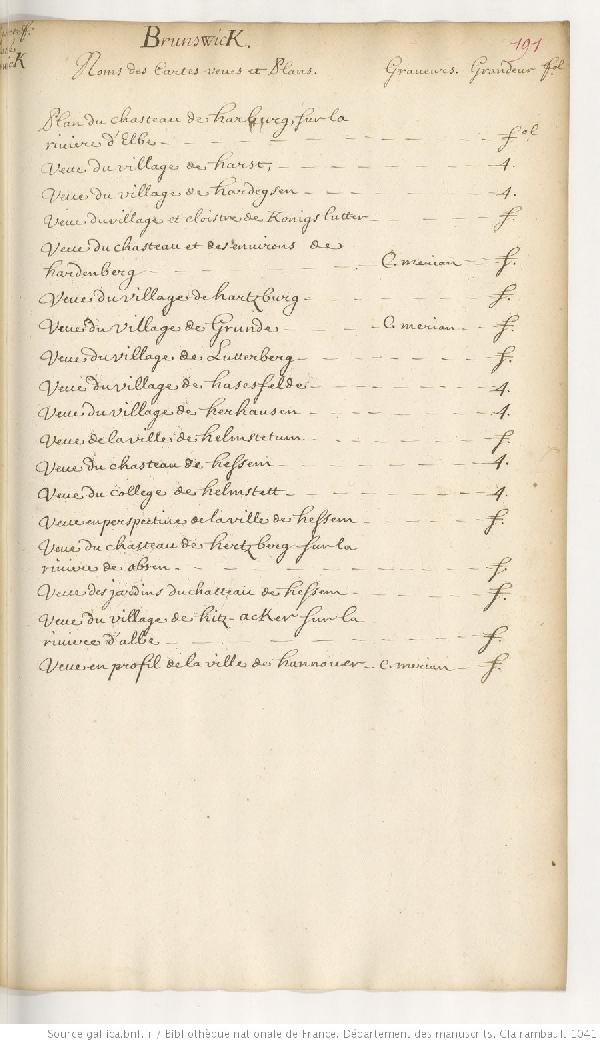 Brunswick.
191
Noms des Cartes veues et Plans. Graveurs. Grandeur fol
Plan du chasteau de harburg, sur la
riviere d'Elbe - f.ol
Veue du village de harst, - 4.
Veue du village de hardegsen - 4.
Veue du village et cloistre de Konigs lutter - f.
Veue du chasteau et des environs de
hardenberg - C. merian - f.
Veue du village de hartzburg - f.
Veue du village de Grunde - C. merian - f.
Veue du village de Lutterberg - f.
Veue du village de hasesfelde - 4.
Veue du village de herhausen - 4.
Veue de la ville de helmstetum - f.
Veue du chasteau de hessem - 4.
Veue du college de helmstett - 4.
Veue en perspective de la ville de hessem - f.
Veue du chasteau de hertzberg sur la
riviere de absen - f.
Veue des jardins du chatteau de hessem - f.
Veue du village de hitz-acker sur la
riviere d'albe - f.
Veue en profil de la ville de hannover - C. merian - f.
Source gallica.bnf.fr / Bibliothèque nationale de France. Département des manuscrits. Clairambault 1041